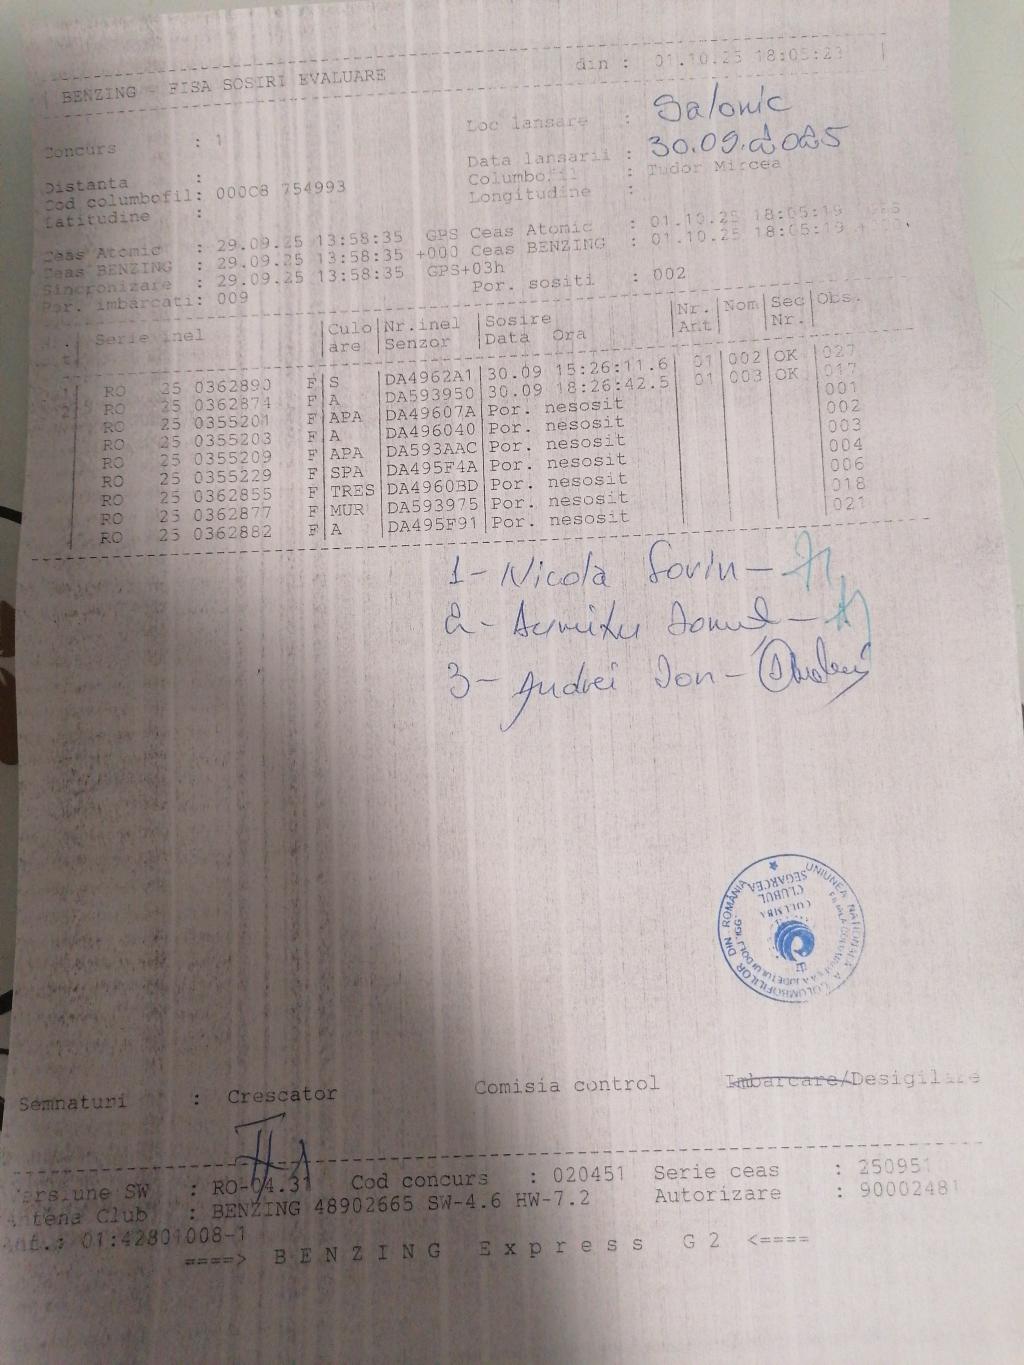 BENZING - FISA SOSIRI EVALUARE din : 01.10.25 18:05:23
Concurs : 1 Loc lansare : Salonic
Data lansarii : 30.09.2025
Distanta :
Cod columbofil: 000C8 754993 Columbofil : Tudor Mircea
Latitudine : Longitudine :
Ceas Atomic : 29.09.25 13:58:35 GPS Ceas Atomic : 01.10.25 18:05:19 GPS
Ceas BENZING : 29.09.25 13:58:35 +000 Ceas BENZING : 01.10.25 18:05:19
Sincronizare : 29.09.25 13:58:35 GPS+03h
Por. imbarcati: 009 Por. sositi : 002
Serie inel Culo Nr.inel Sosire Nr. Nom Sec Obs.
are Senzor Data Ora Ant Nr.
1 RO 25 0362890 F S DA4962A1 30.09 15:26:11.6 01 002 OK 027
2 RO 25 0362874 F A DA593950 30.09 18:26:42.5 01 003 OK 017
RO 25 0355201 F APA DA49607A Por. nesosit 001
RO 25 0355203 F A DA496040 Por. nesosit 002
RO 25 0355209 F APA DA593AAC Por. nesosit 003
RO 25 0355229 F SPA DA495F4A Por. nesosit 004
RO 25 0362855 F TRES DA4960BD Por. nesosit 006
RO 25 0362877 F MUR DA593975 Por. nesosit 018
RO 25 0362882 F A DA495F91 Por. nesosit 021
1- Nicola Sorin -
2- Dumitru Ionuț -
3- Andrei Ion - Andrei
UNIUNEA NAȚIONALĂ A COLUMBOFILILOR DIN ROMÂNIA
CLUBUL
COLUMBA
SEGARCEA
Semnaturi : Crescator Comisia control Imbarcare/Desigilare
Versiune SW : RO-04.31 Cod concurs : 020451 Serie ceas : 250951
Antena Club : BENZING 48902665 SW-4.6 HW-7.2 Autorizare : 90002481
Ant.: 01:42801008-1
====> BENZING Express G2 <====